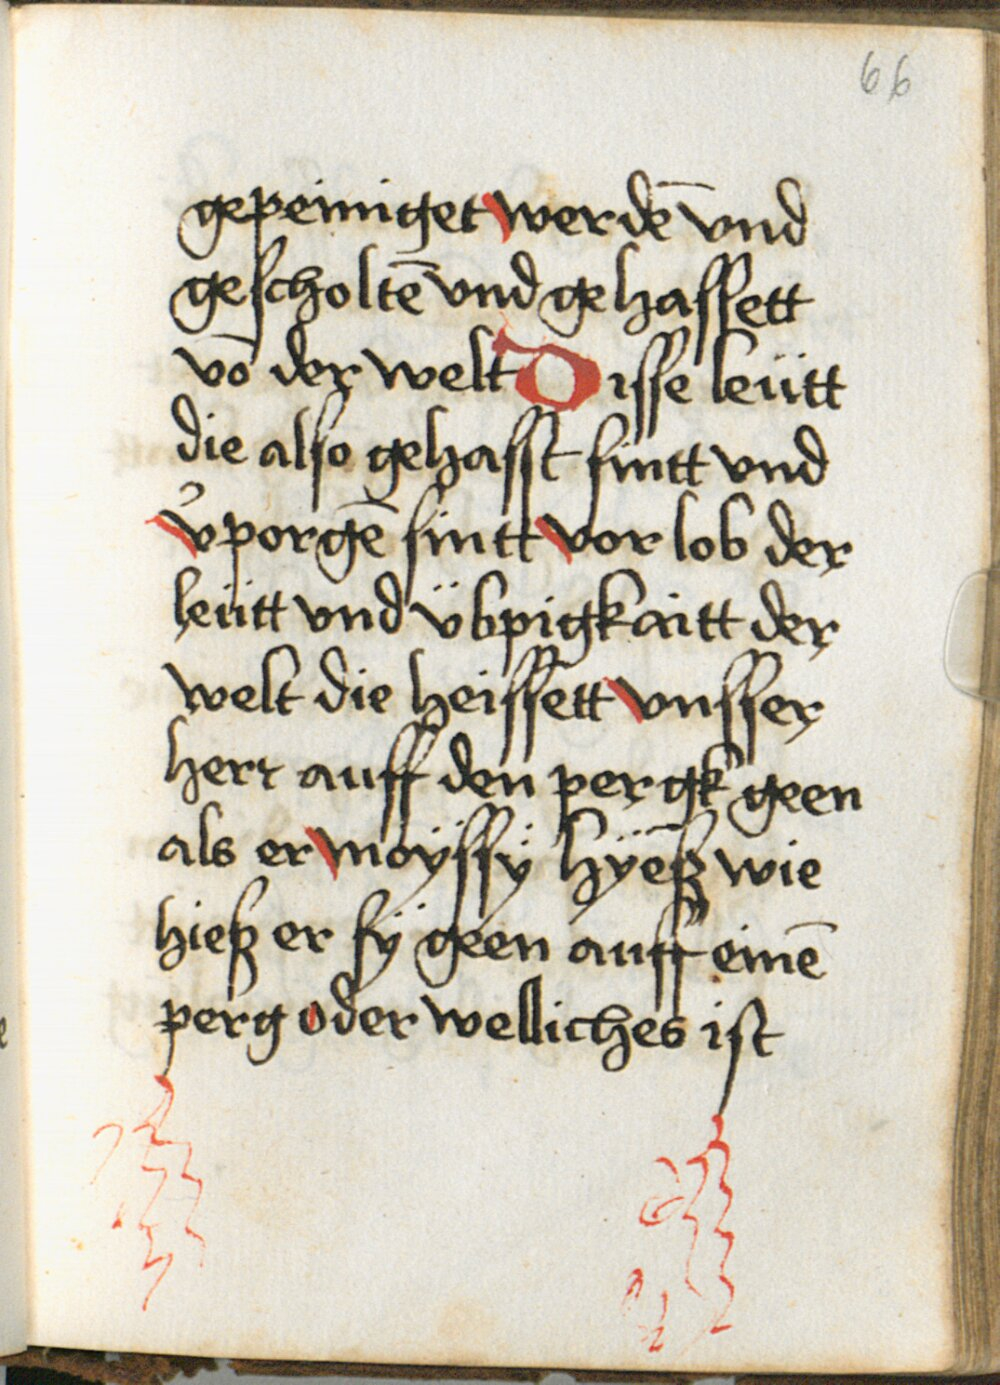 66
gepeiniget werdē vnd
gescholtē vnd gehassett
vō der welt Disse leütt
die also gehasst sintt vnd
v̾porgē sintt vor lob der
leütt vnd übpigkaitt der
welt die heissett vnsser
herr auff den pergk geen
als er moÿssÿ hÿeß wie
hieß er sÿ geen auff einē
perg oder welliches ist